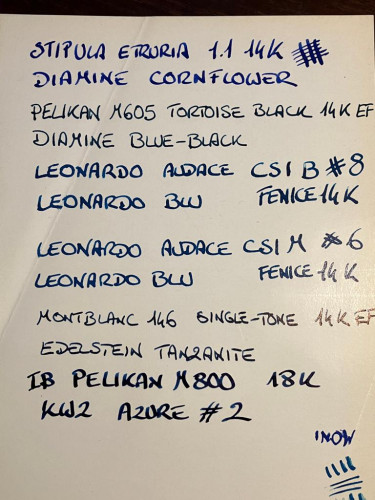 STIPULA ETRURIA 1.1 14K
DIAMINE CORNFLOWER
PELIKAN M605 TORTOISE BLACK 14K EF
DIAMINE BLUE-BLACK
LEONARDO AUDACE CSI B #8
LEONARDO BLU FENICE 14K
LEONARDO AUDACE CSI M #6
LEONARDO BLU FENICE 14K
MONTBLANC 146 SINGLE-TONE 14K EF
EDELSTEIN TANZANITE
IB PELIKAN M800 18K
KWZ AZURE #2
INOW